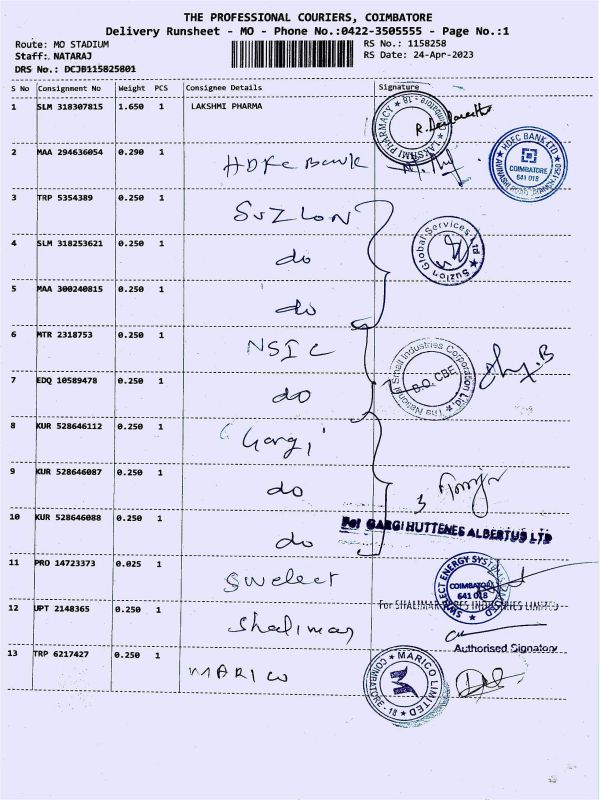 THE PROFESSIONAL COURIERS, COIMBATORE
Delivery Runsheet - MO - Phone No.:0422-3505555 - Page No.:1
Route: MO STADIUM
RS No.: 1158258
Staff: NATARAJ
RS Date: 24-Apr-2023
DRS No.: DCJB115825801
S No Consignment No Weight PCS Consignee Details Signature
1 SLM 318307815 1.650 1 LAKSHMI PHARMA
2 MAA 294636054 0.290 1 HDFC Bank
HDEC BANK LTD
COIMBATORE
641 018
3 TRP 5354389 0.250 1 SUZLON
Suzlon Global Services Ltd
4 SLM 318253621 0.250 1 do
5 MAA 300240815 0.250 1 do
6 MTR 2318753 0.250 1 NSIC
The National Small Industries Corporation Ltd
B.O. CBE
7 EDQ 10589478 0.250 1 do
8 KUR 528646112 0.250 1 Gargi
9 KUR 528646087 0.250 1 do
10 KUR 528646088 0.250 1 do
For GARGI HUTTENES ALBERTUS LTD
11 PRO 14723373 0.025 1 Swelect
SWELECT ENERGY SYSTEMS
COIMBATORE
641 018
12 UPT 2148365 0.250 1 Shalimar
For SHALIMAR INDUSTRIES LIMITED
Authorised Signatory
13 TRP 6217427 0.250 1 MARICO
MARICO LIMITED
COIMBATORE - 18